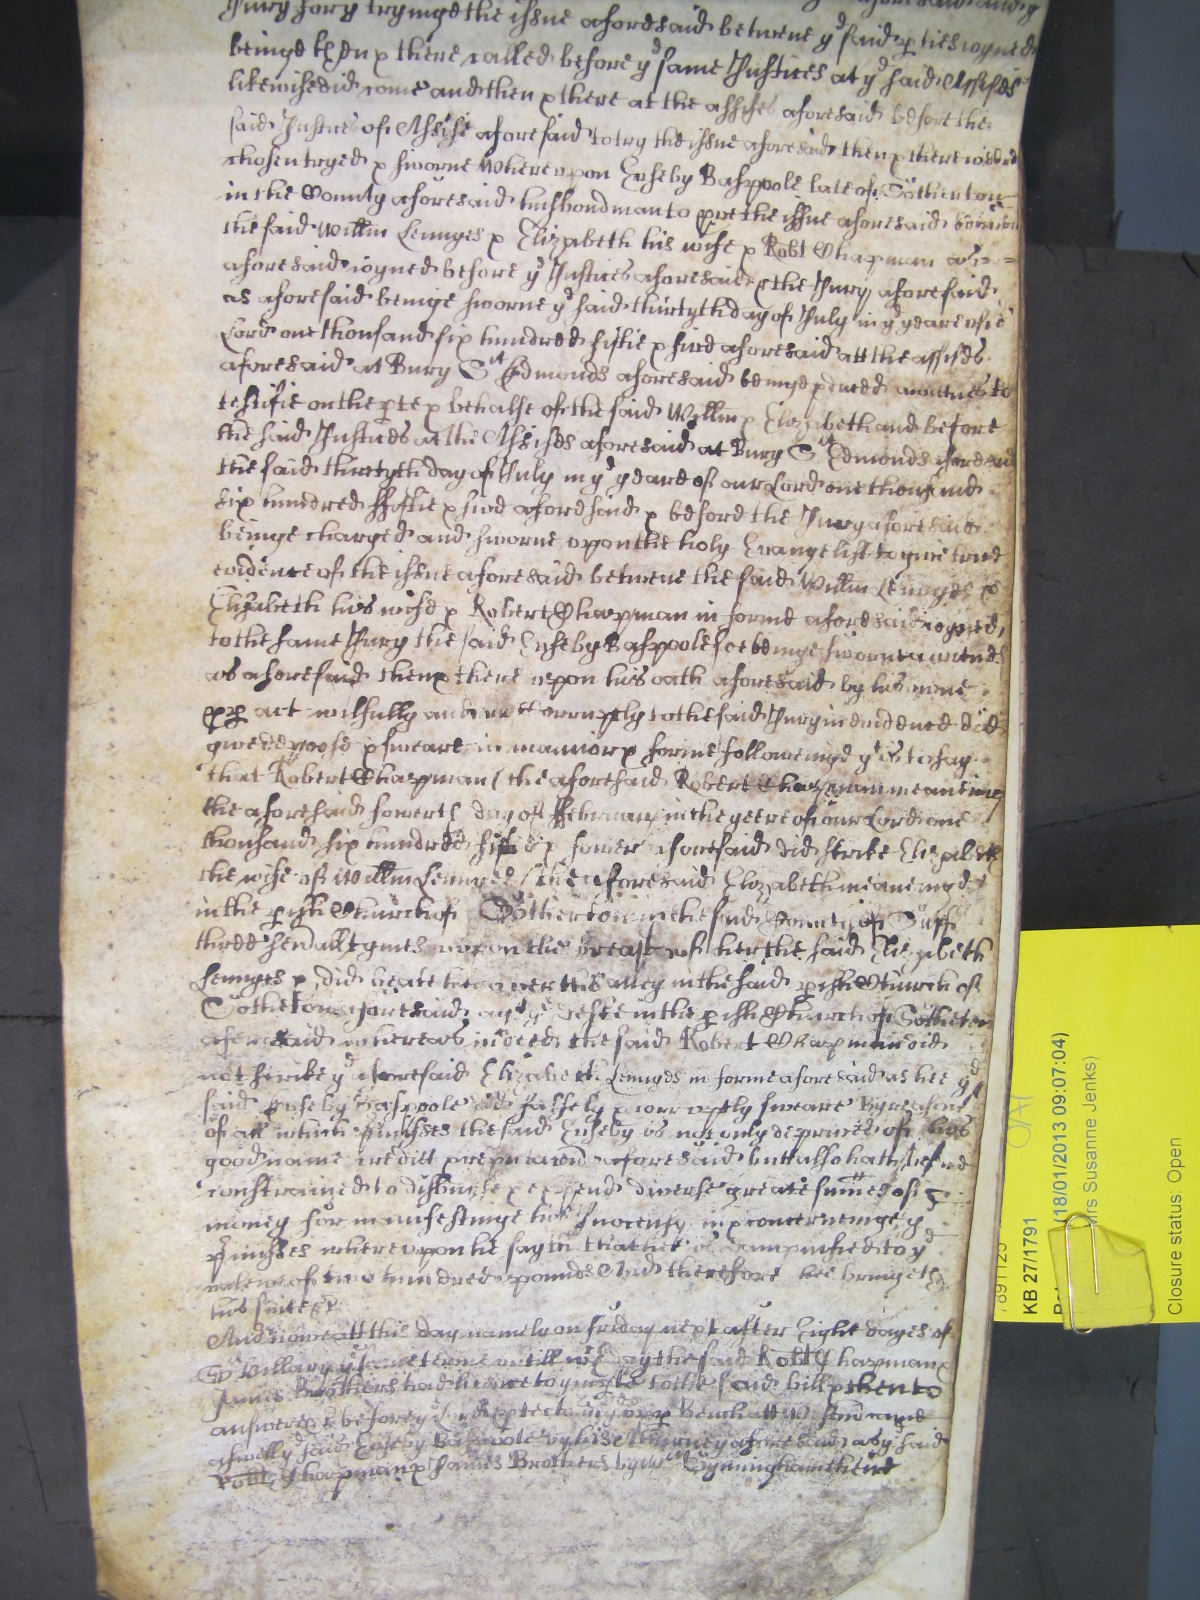 Jury for y trynge the issue aforesaid betwene ye said pties ioyned
beinge then & there called before ye same Justices at ye said Assises
likewise did come and then & there at the assises aforesaid before the
said Justices of Assise aforesaid to try the issue aforesaid then & there
chosen tryed & sworne Whereupon Euseby Baspoole late of Sotherton
in the County aforesaid husbondman to prve the issue aforesaid betweene
the said Willm Lennges & Elizabeth his wife & Robt Chapman as
aforesaid ioyned before ye Justices aforesaid & the Jury aforesaid
as aforesaid beinge sworne ye said thirtyth day of July in ye yeare of
Lord one thousand six hundred fiftie & five aforesaid att the assises
aforesaid at Bury St Edmonds aforesaid beinge pduced a witnes to
testifie on the pte & behalfe of the said Willm & Elizabeth and before
the said Justices at the Assises aforesaid at Bury St Edmonds aforesaid
the said thirtyth day of July in ye yeare of our Lord one thousand
six hundred ffiftie & five aforesaid & before the Jury aforesaid
beinge charged and sworne upon the holy Evangelist to give true
evidence of the issue aforesaid betwene the said Willm Lennges &
Elizabeth his wife & Robert Chapman in forme aforesaid ioyned,
to the same Jury the said Euseby Baspoole soe beinge sworne a witnes
as aforesaid then & there upon his oath aforesaid by his owne
pper act wilfully and corruptly to the said Jury in evidence did
give depose & sweare in mannor & forme followeinge yt is to say
that Robert Chapman (the aforesaid Robert Chapman meaninge
the aforesaid fowerth day of ffebruary in the yeere of our Lord one
thousand six hundred fiftie & fower aforesaid did strike Elizabeth
the wife of Willm Lennges (the aforesaid Elizabeth meaneinge)
in the pish Church of Sotherton in the said County of Suff
three severall tymes upon the breast of her the said Elizabeth
Lennges & did beate her over the alley in the said pish Church of
Sotherton aforesaid in the pish Church of Sotherton
aforesaid whereas indeed the said Robert Chapman did
not strike ye aforesaid Elizabeth Lennges in forme aforesaid as hee ye
said Euseby Baspoole did falsely & corruptly sweare By reason
of all which pmisses the said Euseby is not only deprived of his
good name creditt & reputacon aforesaid butt also hath
constrained to disburse & expend diverse greate sumes of
money for manifestinge his Inocensy in & concerneinge ye
pmisses whereupon he sayth that he is dampnified to ye
valewe of two hundred pounds And therefore hee bringeth
his suite &c
And nowe att this day namely on friday next after Eight dayes of
St Hillary ye same terme untill wch day the said Robt Chapman &
James Brothers had licence to imparle to the said bill & then to
answere &c before ye Lord ptector in ye upper Bench att Westm came
aswell ye said Euseby Baspoole by his Attorney aforesaid as ye said
Robt Chapman & James Brothers by Wm Symingham their
KB 27/1791
(18/01/2013 09:07:04)
Mrs Susanne Jenks)
Closure status: Open